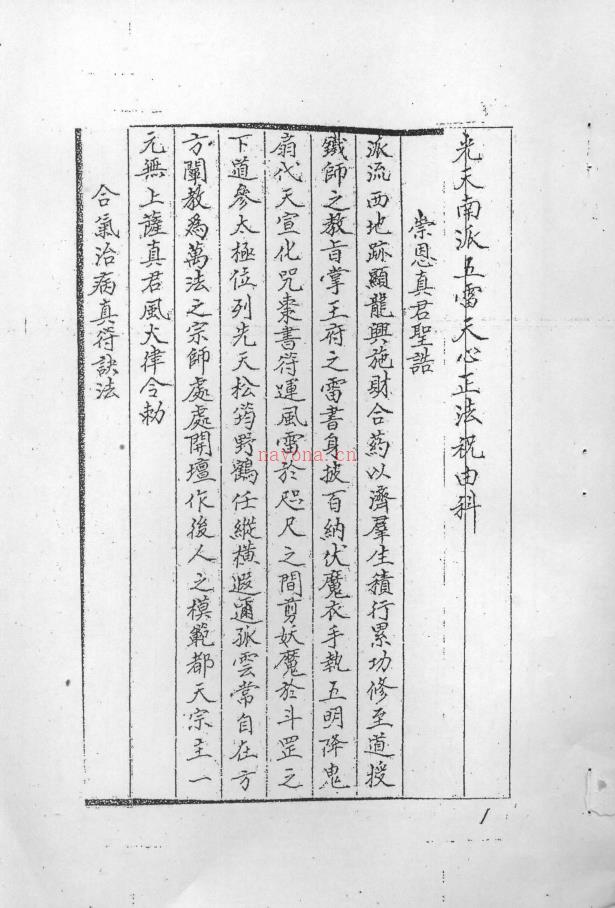 光天南派五雷天心正法祝由科
崇恩真君聖誥
派流西地跡顯龍興施財合藥以濟羣生積行累功修至道授
鐵師之教旨掌王府之雷書身披百納伏魔衣手執五明降鬼
扇代天宣化咒棗書符運風雷於咫尺之間剪妖魔於斗罡之
下道參太極位列先天松筠野鶴任縱橫遐邇孤雲常自在方
方闡教為萬法之宗師處處開壇作後人之模範都天宗主一
元無上薩真君風火律令勅
合氣治病真符訣法
1
nayona.cn